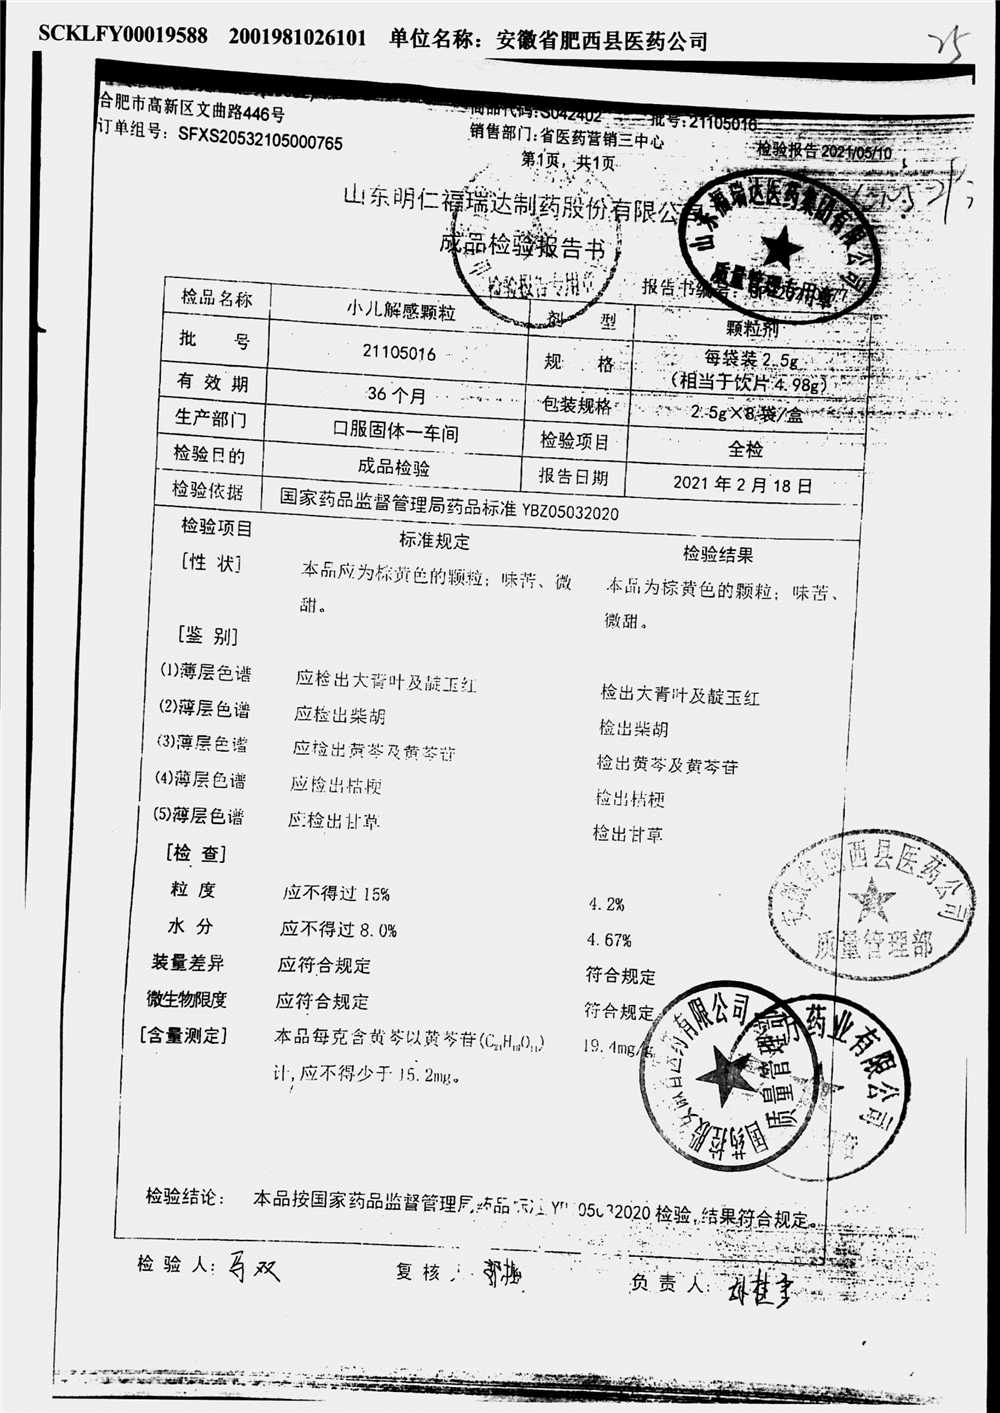 SCKLFY00019588 2001981026101 单位名称：安徽省肥西县医药公司
25
合肥市高新区文曲路446号
商品代码:S042402 批号:21105016
订单组号：SFXS20532105000765
销售部门:省医药营销三中心
检验报告 2021/05/10
第1页，共1页
山东明仁福瑞达制药股份有限公司
成品检验报告书
检验报告专用章
山东福瑞达医药集团有限公司
质量管理专用章
报告书编号：
检品名称 小儿解感颗粒 剂 型 颗粒剂
批 号 21105016 规 格 每袋装2.5g
（相当于饮片4.98g）
有 效 期 36个月 包装规格 2.5g×8袋/盒
生产部门 口服固体一车间 检验项目 全检
检验目的 成品检验 报告日期 2021年2月18日
检验依据 国家药品监督管理局药品标准YBZ05032020
检验项目 标准规定 检验结果
[性 状] 本品应为棕黄色的颗粒；味苦、微 本品为棕黄色的颗粒；味苦、
甜。 微甜。
[鉴 别]
(1)薄层色谱 应检出大青叶及靛玉红 检出大青叶及靛玉红
(2)薄层色谱 应检出柴胡 检出柴胡
(3)薄层色谱 应检出黄芩及黄芩苷 检出黄芩及黄芩苷
(4)薄层色谱 应检出桔梗 检出桔梗
(5)薄层色谱 应检出甘草 检出甘草
[检 查]
粒 度 应不得过15% 4.2%
水 分 应不得过8.0% 4.67%
装量差异 应符合规定 符合规定
微生物限度 应符合规定 符合规定
[含量测定] 本品每克含黄芩以黄芩苷(C₂₁H₁₈O₁₁) 19.4mg/g
计,应不得少于15.2mg。
安徽省肥西县医药公司
质量管理部
国药控股安徽省医药有限公司
质量管理部
药业有限公司
检验结论： 本品按国家药品监督管理局药品标准YBZ05032020检验,结果符合规定。
检 验 人: 马双 复 核 人: 负 责 人: